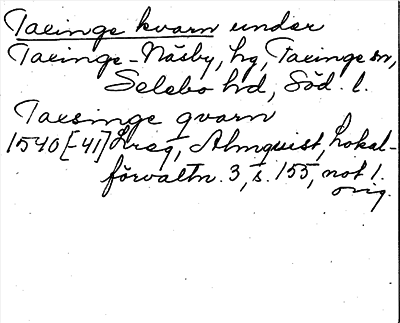 Taxinge kvarn under
Taxinge-Näsby, hg, Taxinge sn,
Selebo hd, Söd. l.
Taxsinge qvarn
1540[-41] Lreg, Almquist, Lokal-
förvaltn. 3, s. 155, not 1.
orig.